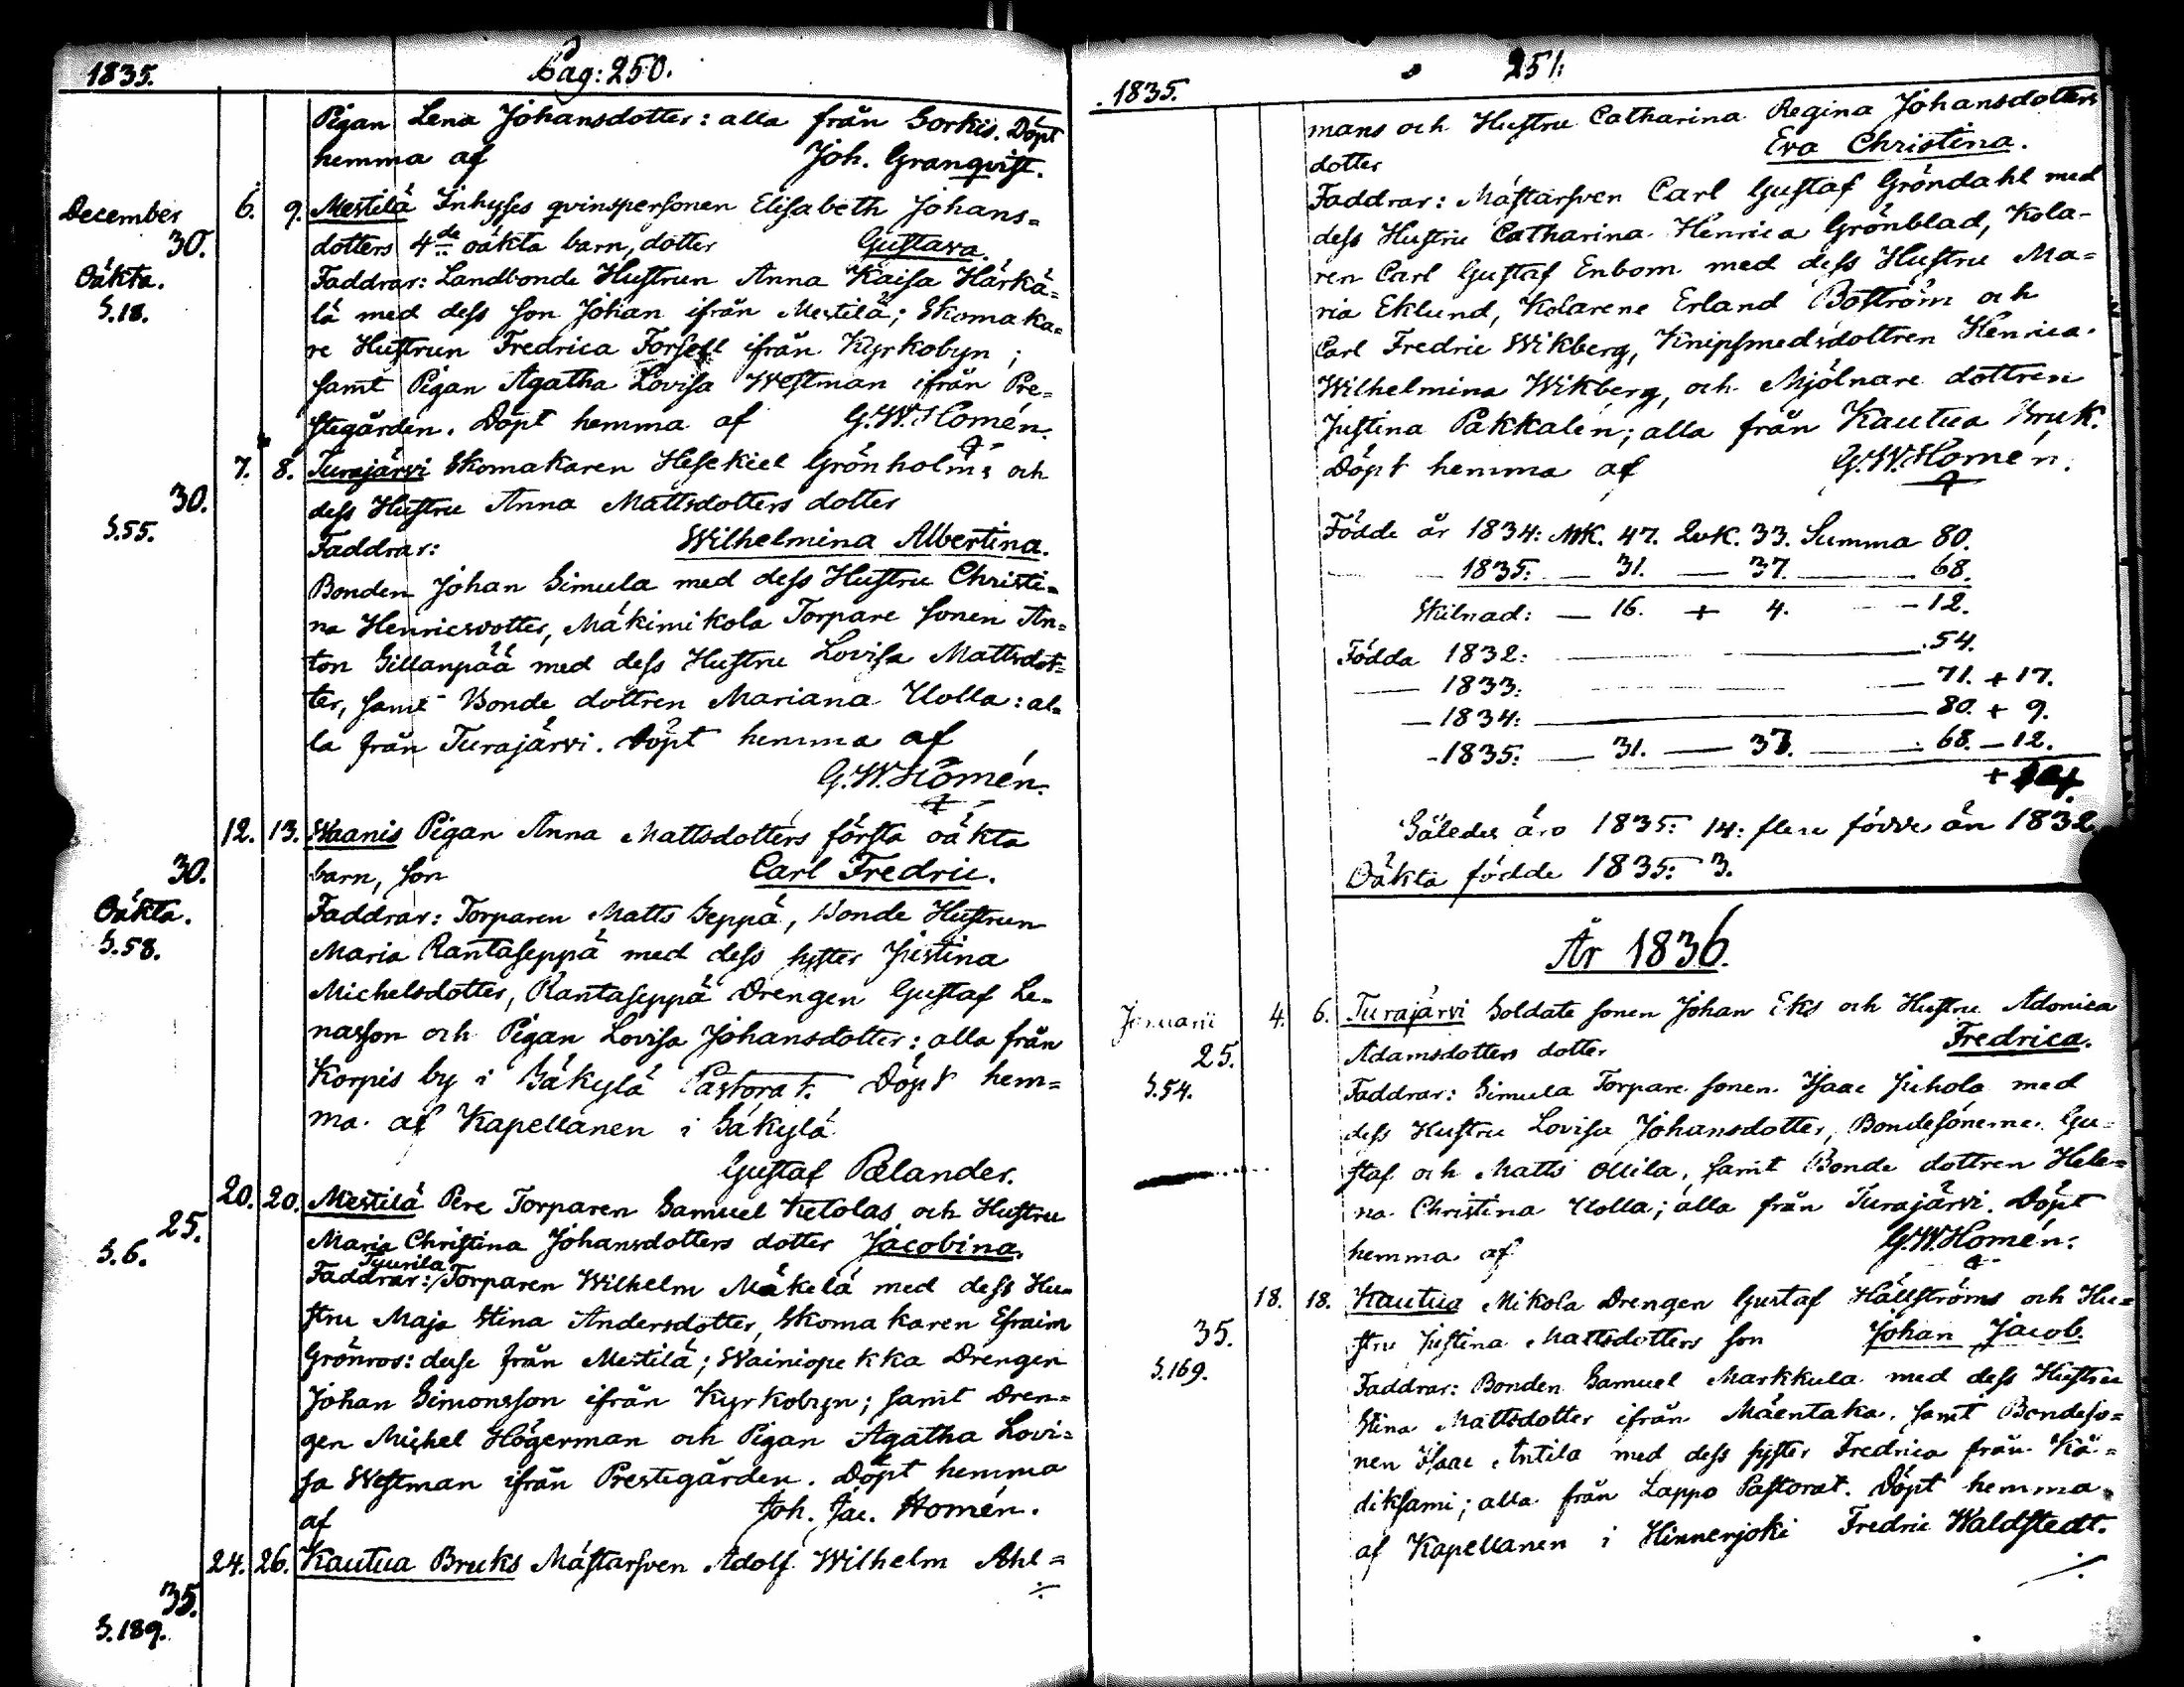 1835.
Pag: 250.
Pigan Lena Johansdotter: alla från Sorkis. Döpt
hemma af Joh. Granqvist.
December 6. 9. Mestilä Inhyses qvinspersonen Elisabeth Johans=
30. dotters 4de oäkta barn, dotter Gustava.
Oäkta. Faddrar: Landbonde Hustrun Anna Kaisa Härkä=
S.18. lä med dess son Johan ifrån Mestilä; Skomaka=
re Hustrun Fredrica Forsell ifrån Kyrkobyn;
samt Pigan Agatha Lovisa Westman ifrån Pre=
stegården. Döpt hemma af G.W. Homén.
7. 8. Turajärvi Skomakaren Hesekiel Grönholms och
30. dess Hustru Anna Mattsdotters dotter
S.55.
Faddrar: Wilhelmina Albertina.
Bonden Johan Simula med dess Hustru Christi=
na Henricsdotter, Mäkimikola Torpare sonen An=
ton Sillanpää med dess Hustru Lovisa Mattsdot=
ter, samt Bonde dottren Mariana Uolla: al=
la från Turajärvi. Döpt hemma af
G.W. Homén.
12. 13. Waanis Pigan Anna Mattsdotters första oäkta
30. barn, son Carl Fredric.
Oäkta. Faddrar: Torparen Matts Seppä, Bonde Hustrun
S.58. Maria Rantaseppä med dess syster Justina
Michelsdotter, Rantaseppä Drengen Gustaf Le=
nasson och Pigan Lovisa Johansdotter: alla från
Korpis by i Säkylä Pastorat. Döpt hem=
ma af Kapellanen i Säkylä
Gustaf Pælander.
20. 20. Mestilä Pere Torparen Samuel Ketolas och Hustru
25.
S.6. Maria Christina Johansdotters dotter Jacobina.
Tyurila
Faddrar: Torparen Wilhelm Mäkelä med dess Hu=
stru Maja Stina Andersdotter, Skomakaren Efraim
Grönroos: desse från Mestilä; Wainiopekka Drengen
Johan Simonsson ifrån Kyrkobyn; samt Dren=
gen Michel Högerman och Pigan Agatha Lovi=
sa Westman ifrån Prestegården. Döpt hemma
af Joh. Jac. Homén.
24. 26. Kautua Bruks Mästarsven Adolf Wilhelm Ahl=
35.
S.189.
1835.
251.
mans och Hustru Catharina Regina Johansdotters
dotter Eva Christina.
Faddrar: Mästarsven Carl Gustaf Gröndahl med
dess Hustru Catharina Henrica Grönblad, Kola-
ren Carl Gustaf Enbom med dess Hustru Ma=
ria Eklund, Kolarene Erland Boström och
Carl Fredric Wikberg, Knipsmedsdottren Henrica
Wilhelmina Wikberg, och Mjölnare dottren
Justina Pakkalén; alla från Kautua Bruk.
Döpt hemma af G.W. Homén.
Födde år 1834: MK. 47. QvK. 33. Summa 80.
1835: — 31. — 37. — 68.
Skilnad: — 16. + 4. — 12.
Födda 1832: — 54.
— 1833: — 71. + 17.
— 1834: — 80. + 9.
- 1835: — 31. — 37. — 68. — 12.
+ 14.
Således äro 1835: 14: flere födde än 1832
Oäkta födde 1835: 3.
År 1836.
Januarii 4. 6. Turajärvi Soldate sonen Johan Eks och Hustru Adonica
25. Adamsdotters dotter Fredrica.
S.54. Faddrar: Simula Torpare sonen Isaac Juhola med
dess Hustru Lovisa Johansdotter, Bondesönerne Gu=
staf och Matts Ollila, samt Bonde dottren Hele=
na Christina Uolla; alla från Turajärvi. Döpt
hemma af G.W. Homén.
18. 18. Kautua Mikola Drengen Gustaf Hällströms och Hu=
35. stru Justina Mattsdotters son Johan Jacob.
S.169. Faddrar: Bonden Samuel Markkula med dess Hustru
Stina Mattsdotter ifrån Mäentaka, samt Bondeso=
nen Isaac Antila med dess syster Fredrica från Kö=
diksami; alla från Lappo Pastorat. Döpt hemma
af Kapellanen i Hinnerjoki Fredric Waldstedt.